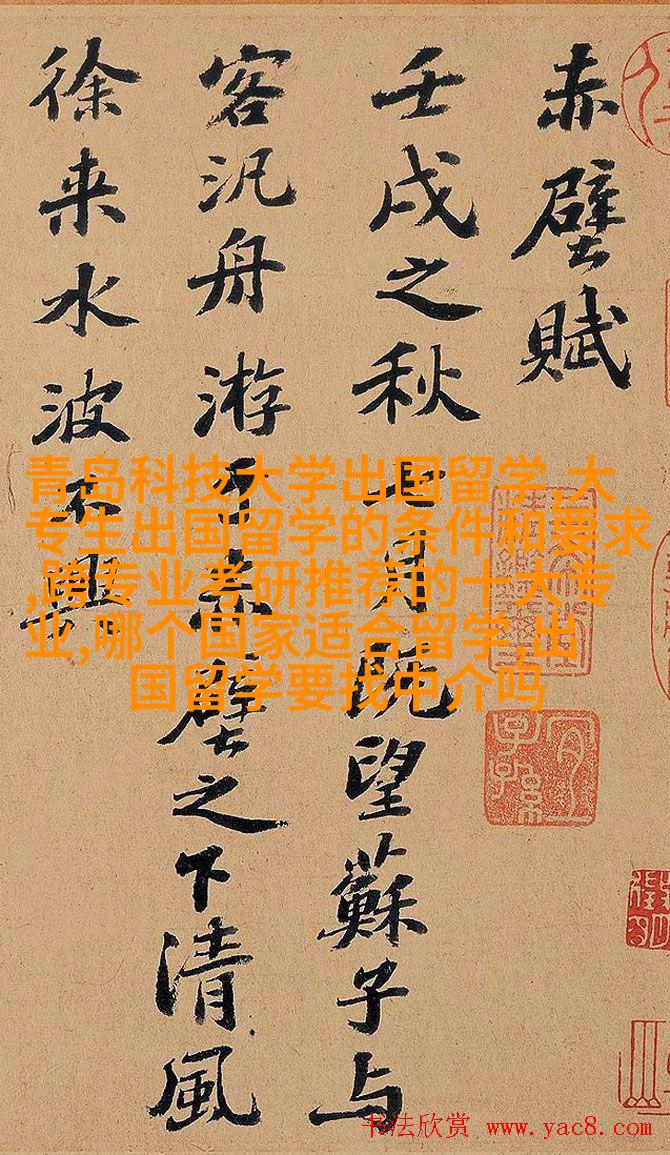 赤壁賦
壬戌之秋七月既望蘇子与
客汎舟游于赤壁之下清風
徐来水波不興
青岛科技大学出国留学,大
专生出国留学的条件和要求
,跨专业考研推荐的十大专
业,哪个国家适合留学,出
国留学要找中介吗
书法欣赏 www.yac8.com